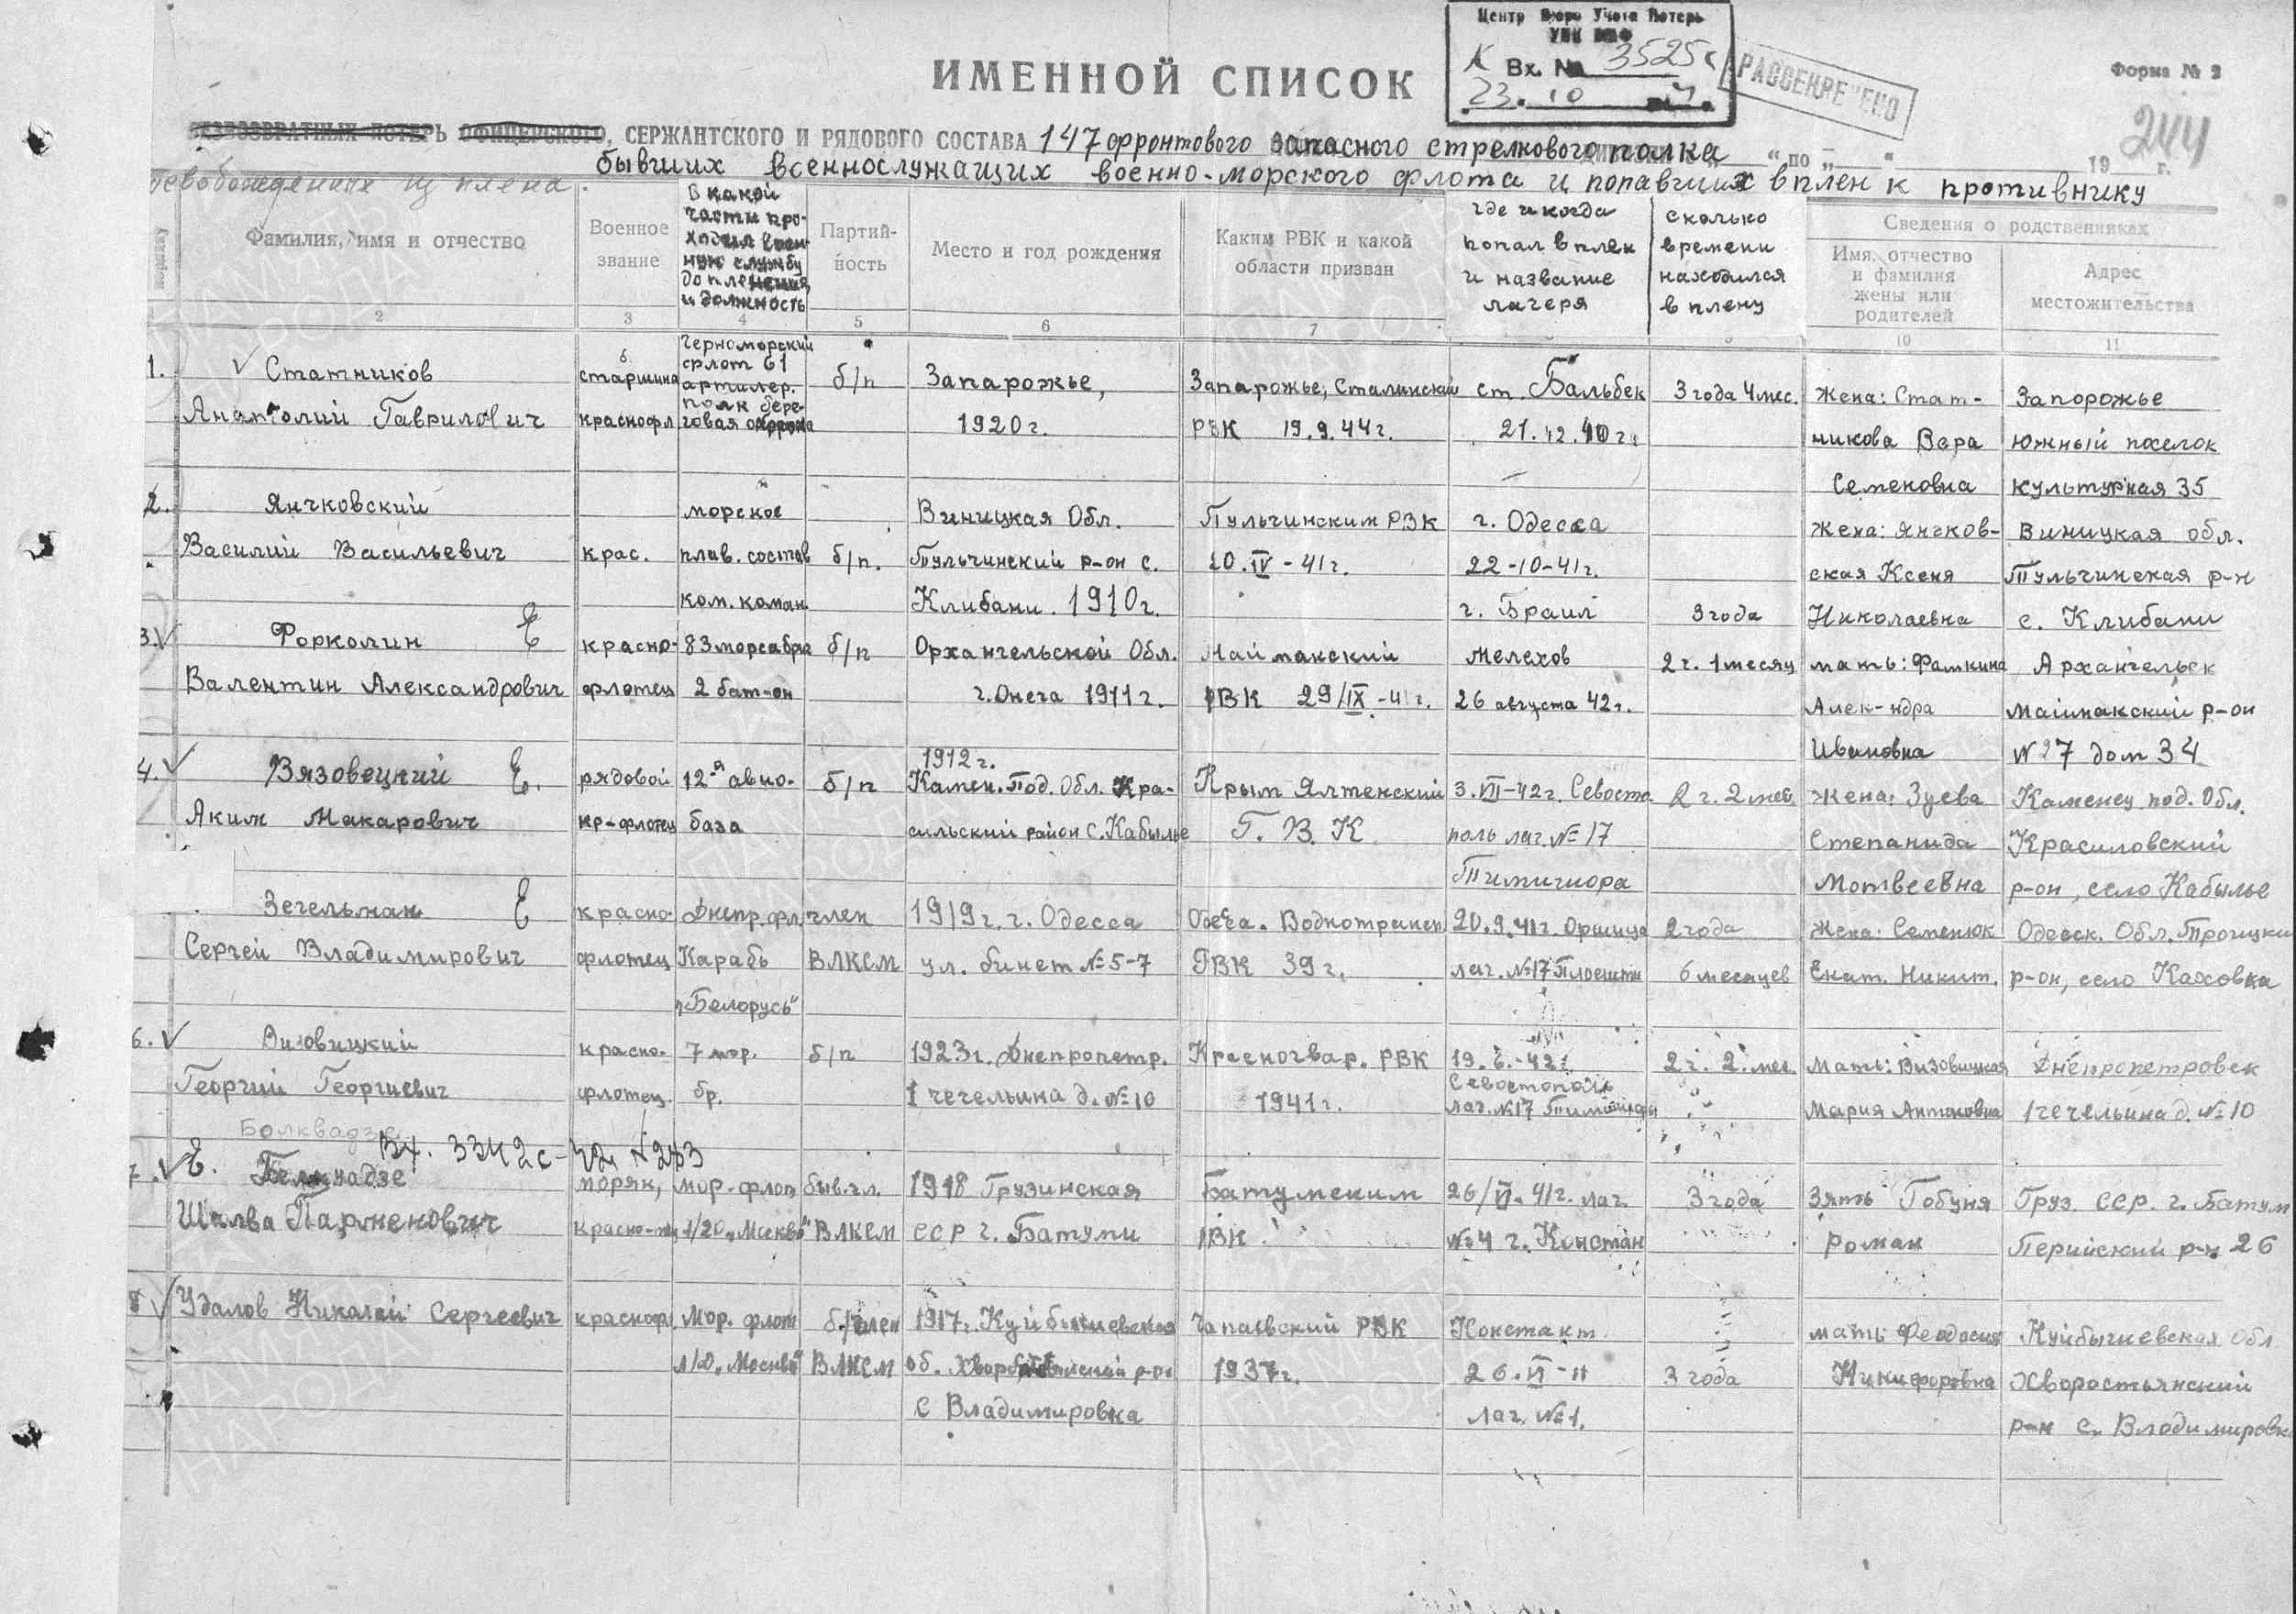 Центр Бюро Учета Потерь
К Вх. № 3525с
23. 10
РАССЕКРЕЧЕНО
Форма № 2
244
ИМЕННОЙ СПИСОК
БЕЗВОЗВРАТНЫХ ПОТЕРЬ ОФИЦЕРСКОГО, СЕРЖАНТСКОГО И РЯДОВОГО СОСТАВА 147 фронтового запасного стрелкового полка " по " " 19 г.
бывших военнослужащих военно-морского флота и попавших в плен к противнику
освобожденных из плена.
Фамилия, имя и отчество
Военное звание
В какой части проходил военную службу до пленения и должность
Партийность
Место и год рождения
Каким РВК и какой области призван
где и когда попал в плен и название лагеря
сколько времени находился в плену
Сведения о родственниках
Имя, отчество и фамилия жены или родителей
Адрес местожительства
2 3 4 5 6 7 10 11
1. Статников старшина Черноморский флот 61 артилер. полк б/п Запарожье, Запарожье, Сталинский ст. Бальбек 3 года 4 мес. Жена: Стат- Запорожье
Анатолий Гаврилович краснофл береговая 1920 г. РВК 19.9.44 г. 21.12. никова Вера южный поселок
Семеновна культурная 35
2. Янчковский морское Виницкая Обл. Пульчинским РВК г. Одесса Жена: Янчков- Виницкая обл.
Василий Васильевич крас. плав. состав б/п. Тульчинский р-он с. 20.IV-41г. 22-10-41г. ская Ксеня Тульчинская р-н
ком. коман. Клибани. 1910 г. г. Браил 3 года Николаевна с. Клибани
3. Форколин Е красно- 83 б/п Орхангельской Обл. Маймакский Мелехов 2 г. 1 месяц мать: Фамкина Архангельск
Валентин Александрович флотец 2 бат-он г. Онега 1911 г. РВК 29/IX-41 г. 26 августа 42 г. Алек-ндра Маймакский р-он
Ивановна № 27 дом 34
1912 г.
4. Вязовецкий Е. рядовой 12я авио- б/п Камен. Под. Обл. Кра- Крым Ялтенский 3.VII-42 г. Севасто- 2 г. 2 мес. Жена: Зуева Каменец под. Обл.
Аким Макарович кр-флотец база сильский район с. Кабылье Г. В. К поль лаг. № 17 Степанида Красиловский
Тимишиора Мотвеевна р-он, село Кабылье
Зегельман Е красно- Днепр. фл. член 1919 г. г. Одесса Одесса. Воднотрансп 20.9.41г. Оршица 2 года Жена: Семенюк Одесск. Обл. Троицки
Сергей Владимирович флотец Карабь ВЛКСМ ул. бинет № 5-7 РВК 39 г. лаг. № 17 Плоешти 6 месяцев Екат. Никит. р-он, село Каховка
"Белорусь"
6. Визовицкий красно- 7 мор. б/п 1923 г. Днепропетр. Красногвар. РВК 19.6.-42 г. 2 г. 2. мес. Мать: Визовицкая Днепропетровск
Георгий Георгиевич флотец. бр. 1 чечельина д. № 10 1941 г. Севостополь лаг. № 17 Мария Антоновна 1 чечельина д. № 10
Болквадзе
Вх. 3342с-
7. Е. моряк, мор. флот быв. чл. 1918 Грузинская Батумским 26/VI-41г. лаг. 3 года Зять Гобуня Груз. ССР. г. Батум
Шалва Парменович 1/20 "Москва" ВЛКСМ ССР г. Батуми РВК. № 4 г. Констан Роман р-н 26
8 Удалов Николай Сергеевич краснофл. Мор. флот б/член 1917 г. Куйбышевская Чапаевский РВК Констант. мать: Феодосия Куйбышевская Обл
л/д "Москва" ВЛКСМ об. р-он 1937 г. 26.VI- 3 года Никифоровна Хворостьянский
с Владимировка лаг. № 1. р-н с. Владимировка